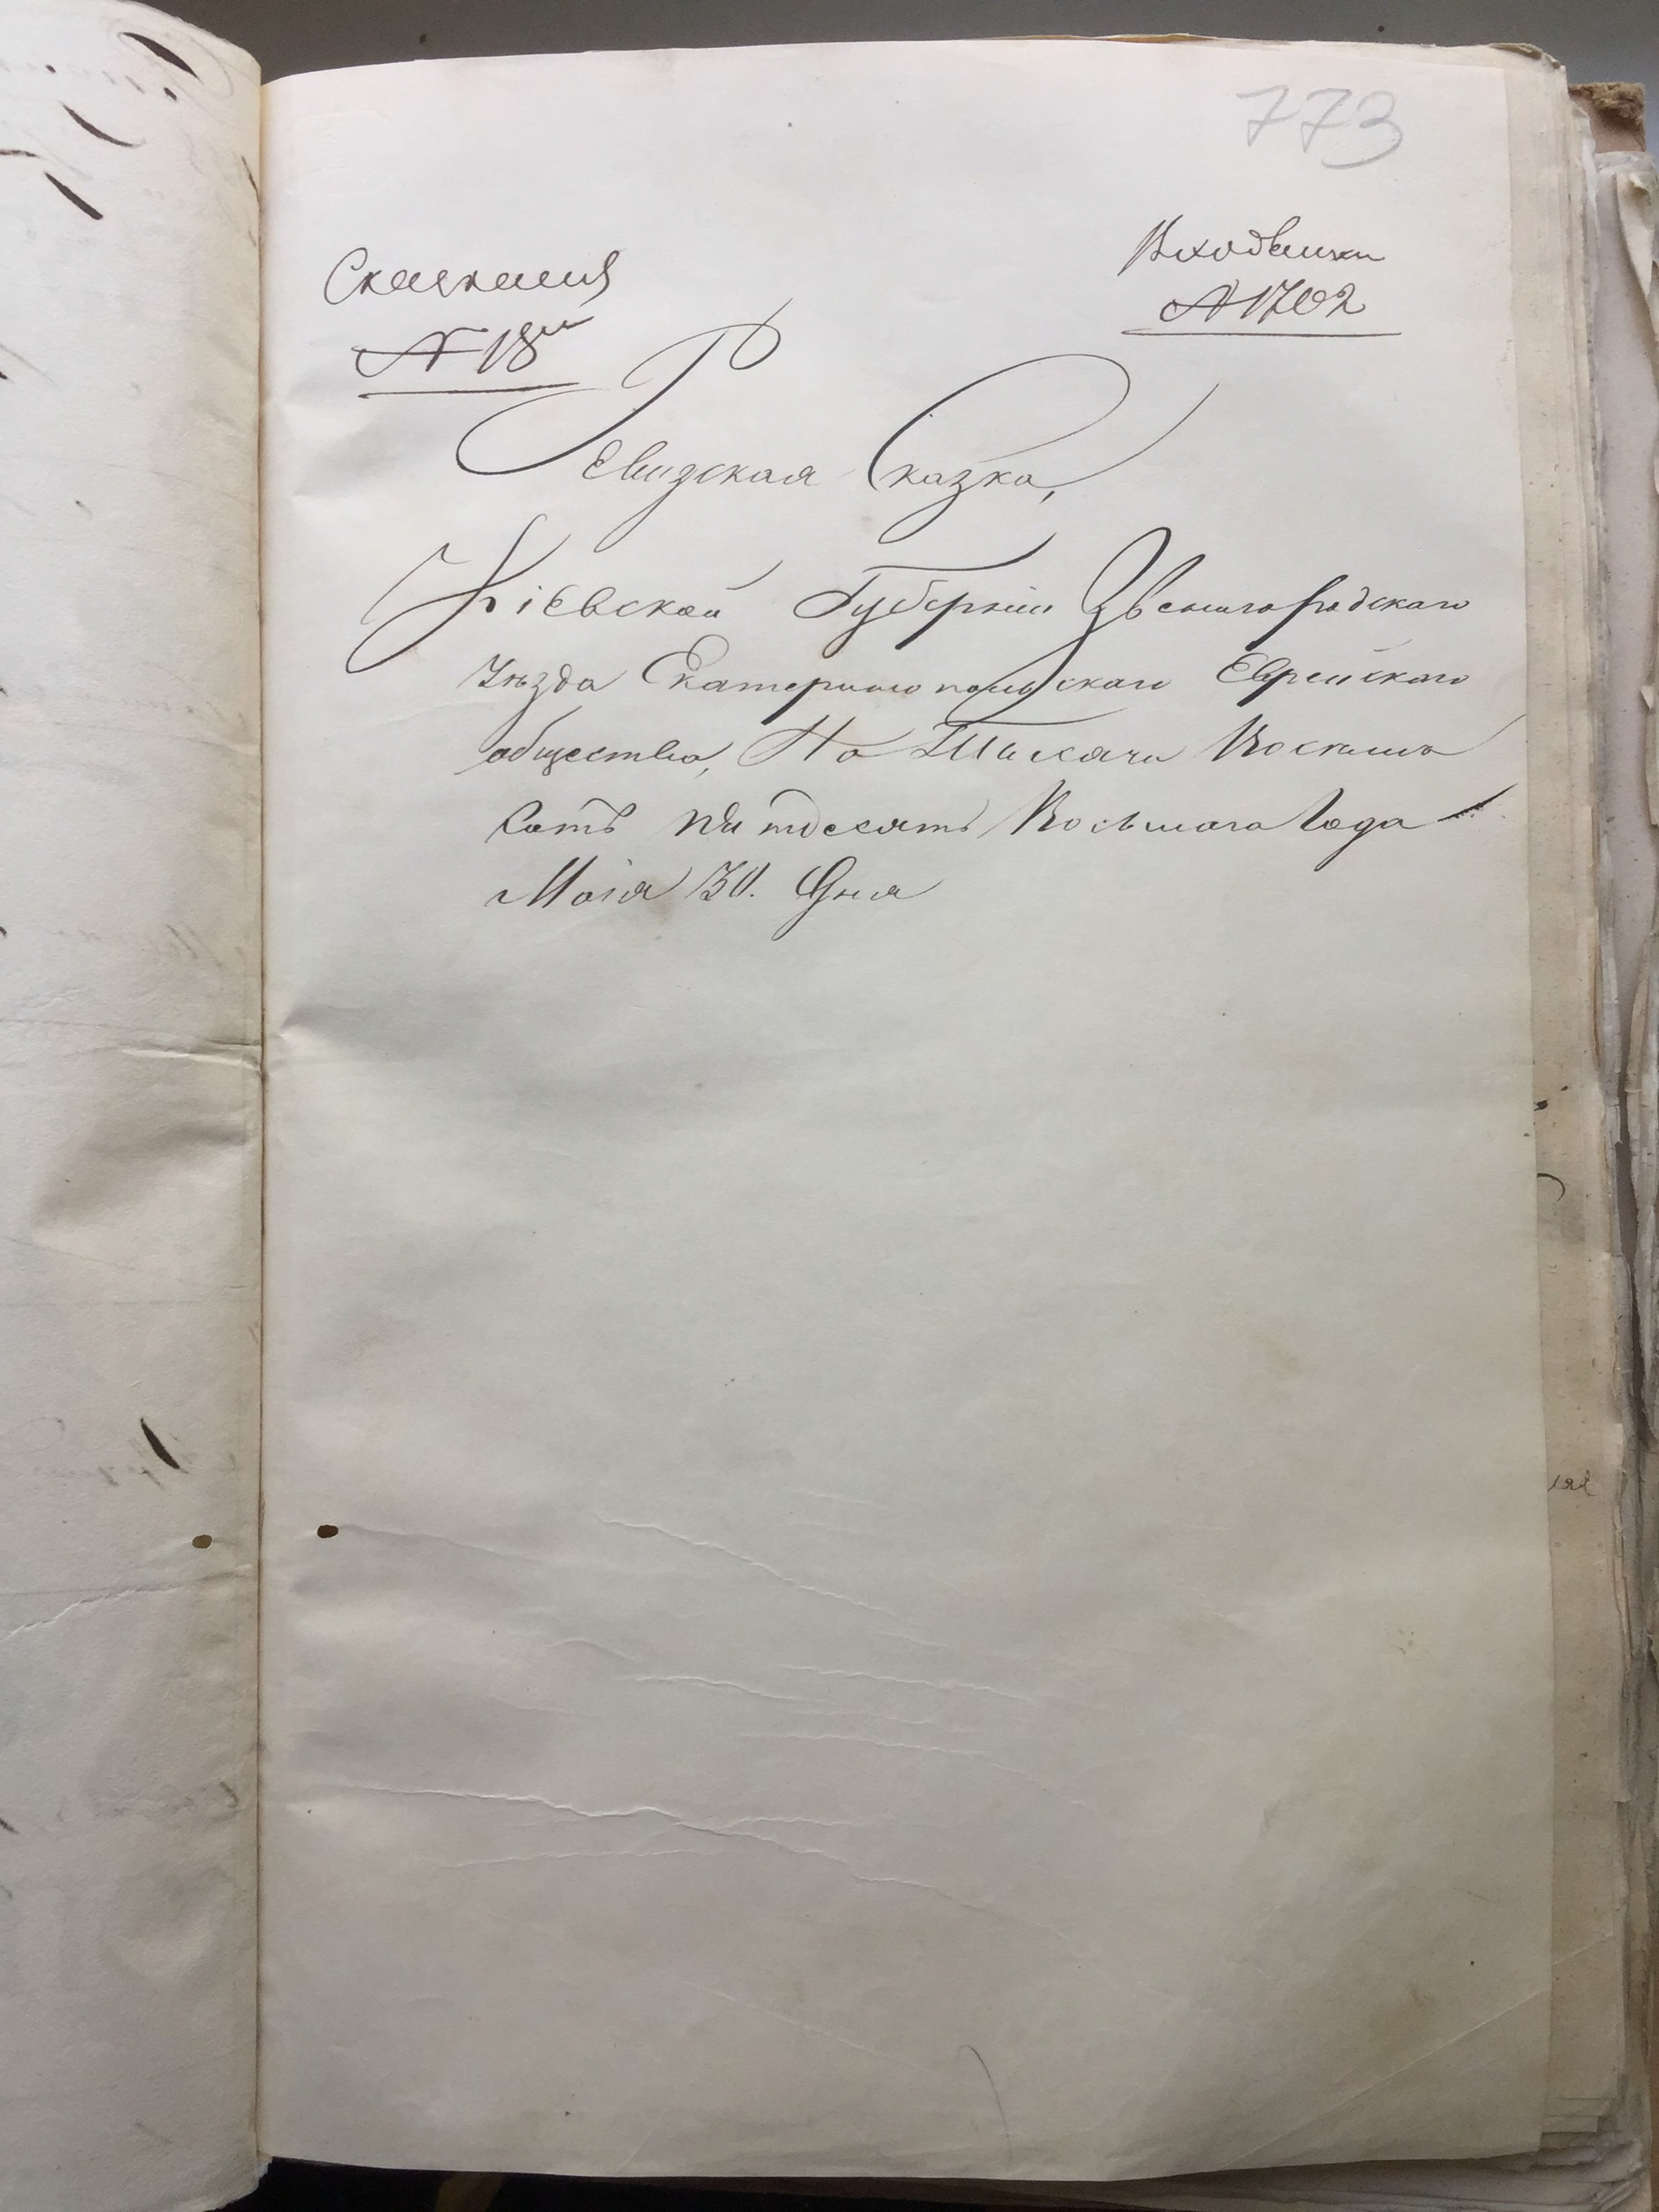 773
Входящий
№ 1702
Сказка
№ 18й
Ревизская Сказка,
Кіевской Губерніи Звенигородскаго
Уѣзда Екатеринопольскаго Еврейскаго
общества, На Тысяча Восемь
Сотъ Пятдесятъ Восьмаго Года
Маія 30. Дня